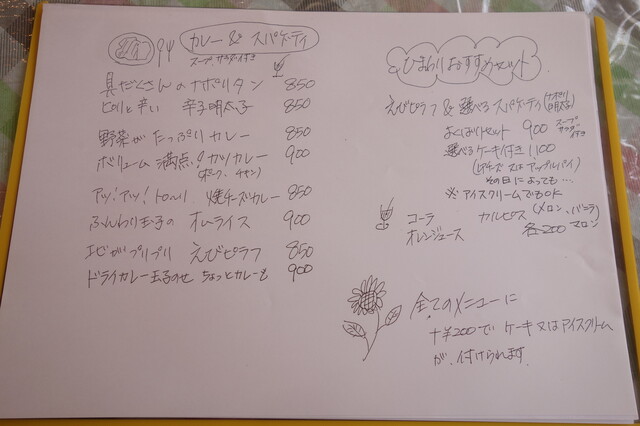 カレー & スパゲッティ
スープ サラダ付き
具だくさんの ナポリタン 850
ピリリと辛い 辛子明太子 850
野菜が たっぷり カレー 850
ボリューム 満点! カツカレー 900
(ポーク、チキン)
アッ!アッ! トロ〜リ 焼チーズカレー 850
ふんわり玉子の オムライス 900
エビがプリプリ えびピラフ 850
ドライカレー 玉子のせ ちょっとカレーも 900
ひまわりおすすめセット
えびピラフ & 選べるスパゲッティ(ナポリ 明太子)
よくばりセット 900 スープ サラダ 付き
選べるケーキ付き 1100
(レアチーズ 又は アップルパイ)
その日によっても…
※ アイスクリームでもOK
コーラ カルピス (メロン、バニラ
オレンジュース 各200 マロン)
全てのメニューに
+¥200で ケーキ又はアイスクリーム
が、付けられます。